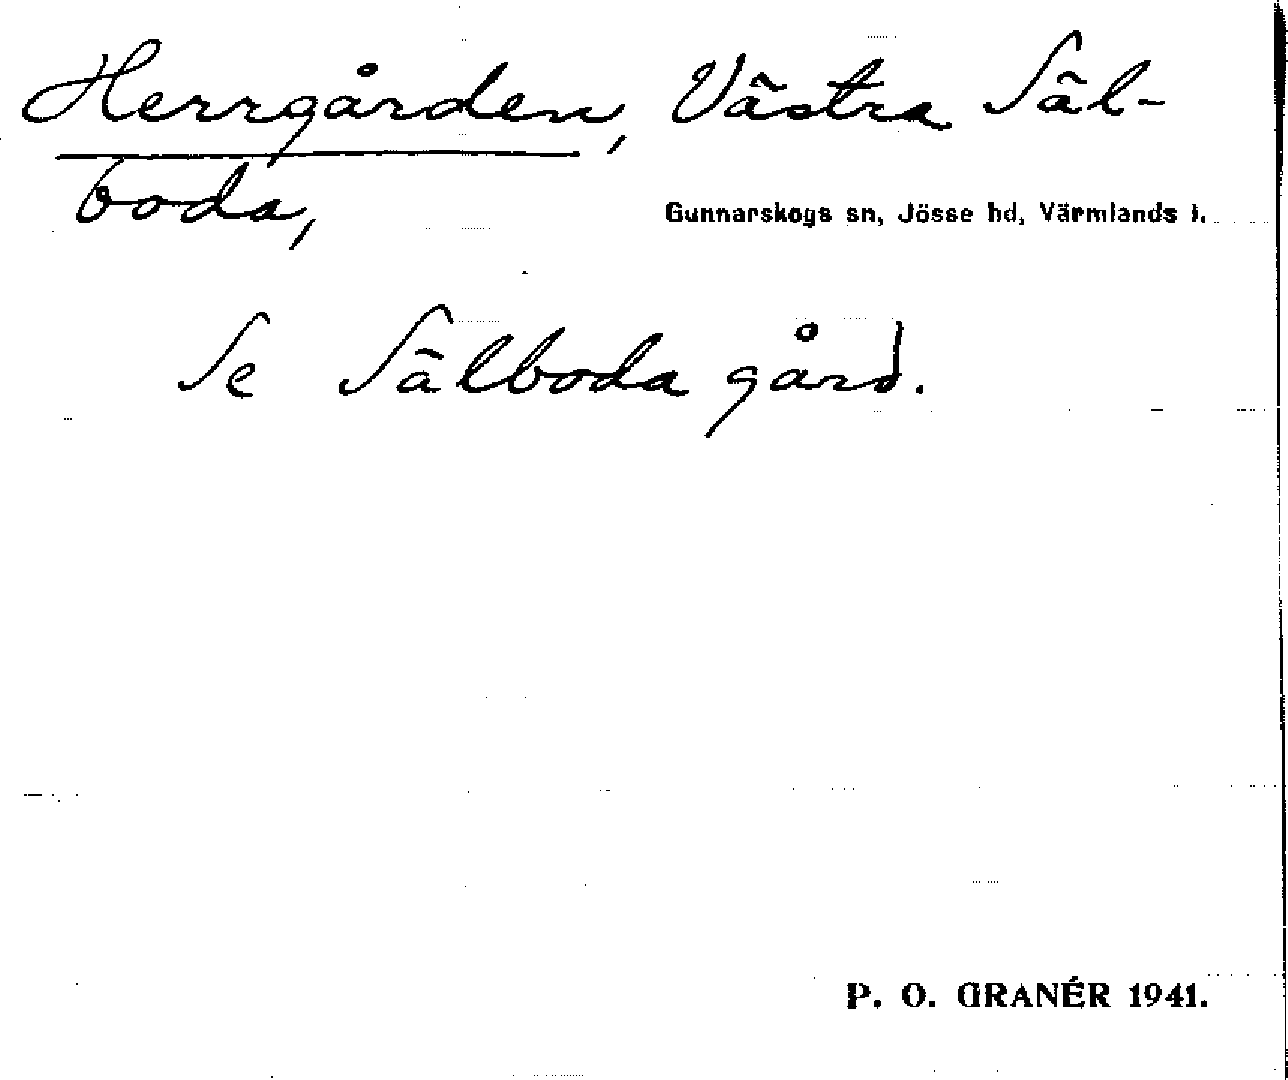 Herrgården, Västra Säl-
boda,
Gunnarskogs sn, Jösse hd, Värmlands l.
Se Sälboda gård.
P. O. GRANÉR 1941.